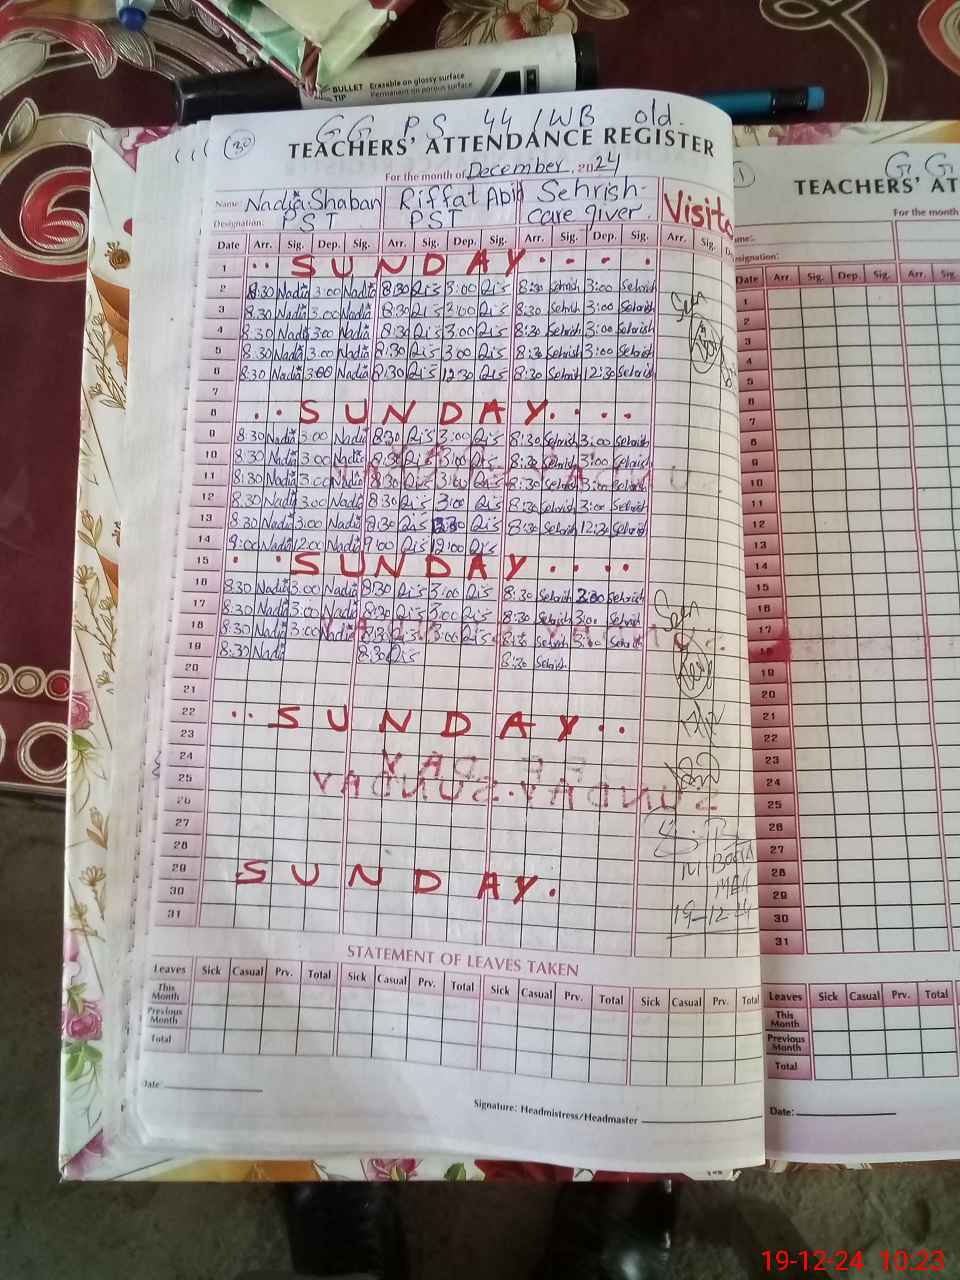 BULLET TIP Erasable on glossy surface
Permanent on porous surface
GG PS 44/WB old.
30 TEACHERS' ATTENDANCE REGISTER
For the month of December. 2024
Name: Nadia Shaban Riffat Abid Sehrish Visito
Designation: PST PST care giver.
Date Arr. Sig. Dep. Sig. Arr. Sig. Dep. Sig. Arr. Sig. Dep. Sig. Arr. Sig.
1 .. SUNDAY . . . . .
2 8:30 Nadia 3:00 Nadia 8:30 Ris 3:00 Ris 8:30 Sehrish 3:00 Sehrish
3 8:30 Nadia 3:00 Nadia 8:30 Ris 3:00 Ris 8:30 Sehrish 3:00 Sehrish
4 8:30 Nadia 3:00 Nadia 8:30 Ris 3:00 Ris 8:30 Sehrish 3:00 Sehrish
5 8:30 Nadia 3:00 Nadia 8:30 Ris 3:00 Ris 8:30 Sehrish 3:00 Sehrish
6 8:30 Nadia 3:00 Nadia 8:30 Ris 12:30 Ris 8:30 Sehrish 12:30 Sehrish
7
8 . . . SUNDAY. . . .
9 8:30 Nadia 3:00 Nadia 8:30 Ris 3:00 Ris 8:30 Sehrish 3:00 Sehrish
10 8:30 Nadia 3:00 Nadia 8:30 Ris 3:00 Ris 8:30 Sehrish 3:00 Sehrish
11 8:30 Nadia 3:00 Nadia 8:30 Ris 3:00 Ris 8:30 Sehrish 3:00 Sehrish
12 8:30 Nadia 3:00 Nadia 8:30 Ris 3:00 Ris 8:30 Sehrish 3:00 Sehrish
13 8:30 Nadia 3:00 Nadia 8:30 Ris Ris 8:30 Sehrish 12:30 Sehrish
14 9:00 Nadia 12:00 Nadia 9:00 Ris 12:00 Ris
15 . . SUNDAY . . . .
16 8:30 Nadia 3:00 Nadia 8:30 Ris 3:00 Ris 8:30 Sehrish 3:00 Sehrish
17 8:30 Nadia 3:00 Nadia 8:30 Ris 3:00 Ris 8:30 Sehrish 3:00 Sehrish
18 8:30 Nadia 3:00 Nadia 8:30 Ris 3:00 Ris 8:30 Sehrish 3:00 Sehrish
19 8:30 Nadia 8:30 Ris 8:30 Sehrish
20
21
22 .. SUNDAY ..
23
24
25
26
27
28
29 SUNDAY.
30
31
19-12-24
STATEMENT OF LEAVES TAKEN
Leaves Sick Casual Prv. Total Sick Casual Prv. Total Sick Casual Prv. Total Sick Casual Prv. Total
This Month
Previous Month
Total
Date
Signature: Headmistress/Headmaster
GG
TEACHERS' AT
For the month
me:
signation:
Date Arr. Sig. Dep. Sig. Arr. Sig.
1
2
3
4
5
6
7
8
9
10
11
12
13
14
15
16
17
18
19
20
21
22
23
24
25
26
27
28
29
30
31
Leaves Sick Casual Prv. Total
This Month
Previous Month
Total
Date:
19-12-24 10:23